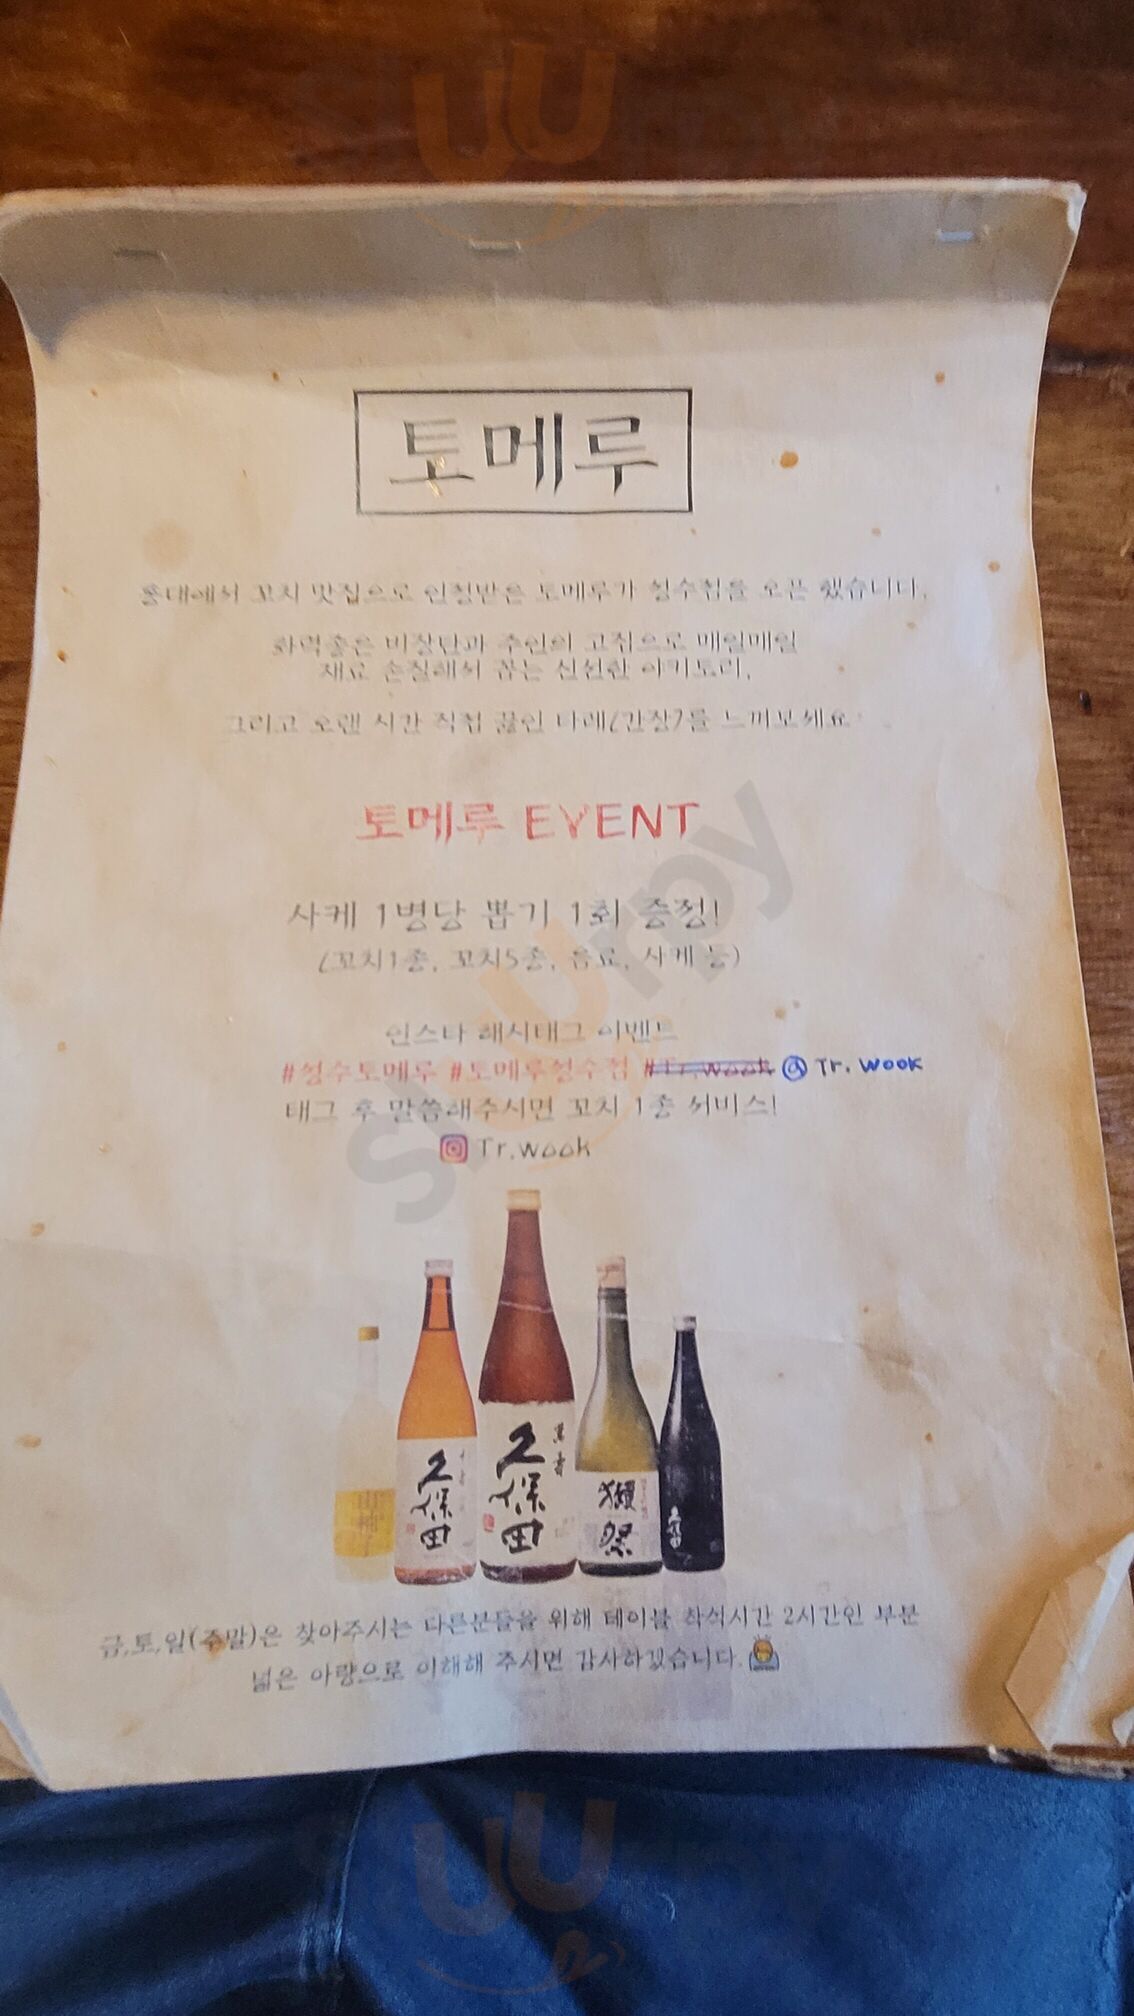 토메루
홍대에서 꼬치 맛집으로 인정받은 토메루가 성수점을 오픈 했습니다.
화력좋은 비장탄과 주인의 고집으로 매일매일
재료 손질해서 굽는 신선한 야키토리,
그리고 오랜 시간 직접 끓인 타래(간장)를 느껴보세요
토메루 EVENT
사케 1병당 뽑기 1회 증정!
(꼬치1종, 꼬치5종, 음료, 사케 등)
인스타 해시태그 이벤트
#성수토메루 #토메루성수점 #Tr.wook @Tr.wook
태그 후 말씀해주시면 꼬치 1종 서비스!
Tr.wook
久保田
久保田 萬寿
獺祭
久保田
금,토,일(주말)은 찾아주시는 다른분들을 위해 테이블 착석시간 2시간인 부분
넓은 아량으로 이해해 주시면 감사하겠습니다.
Sluurpy